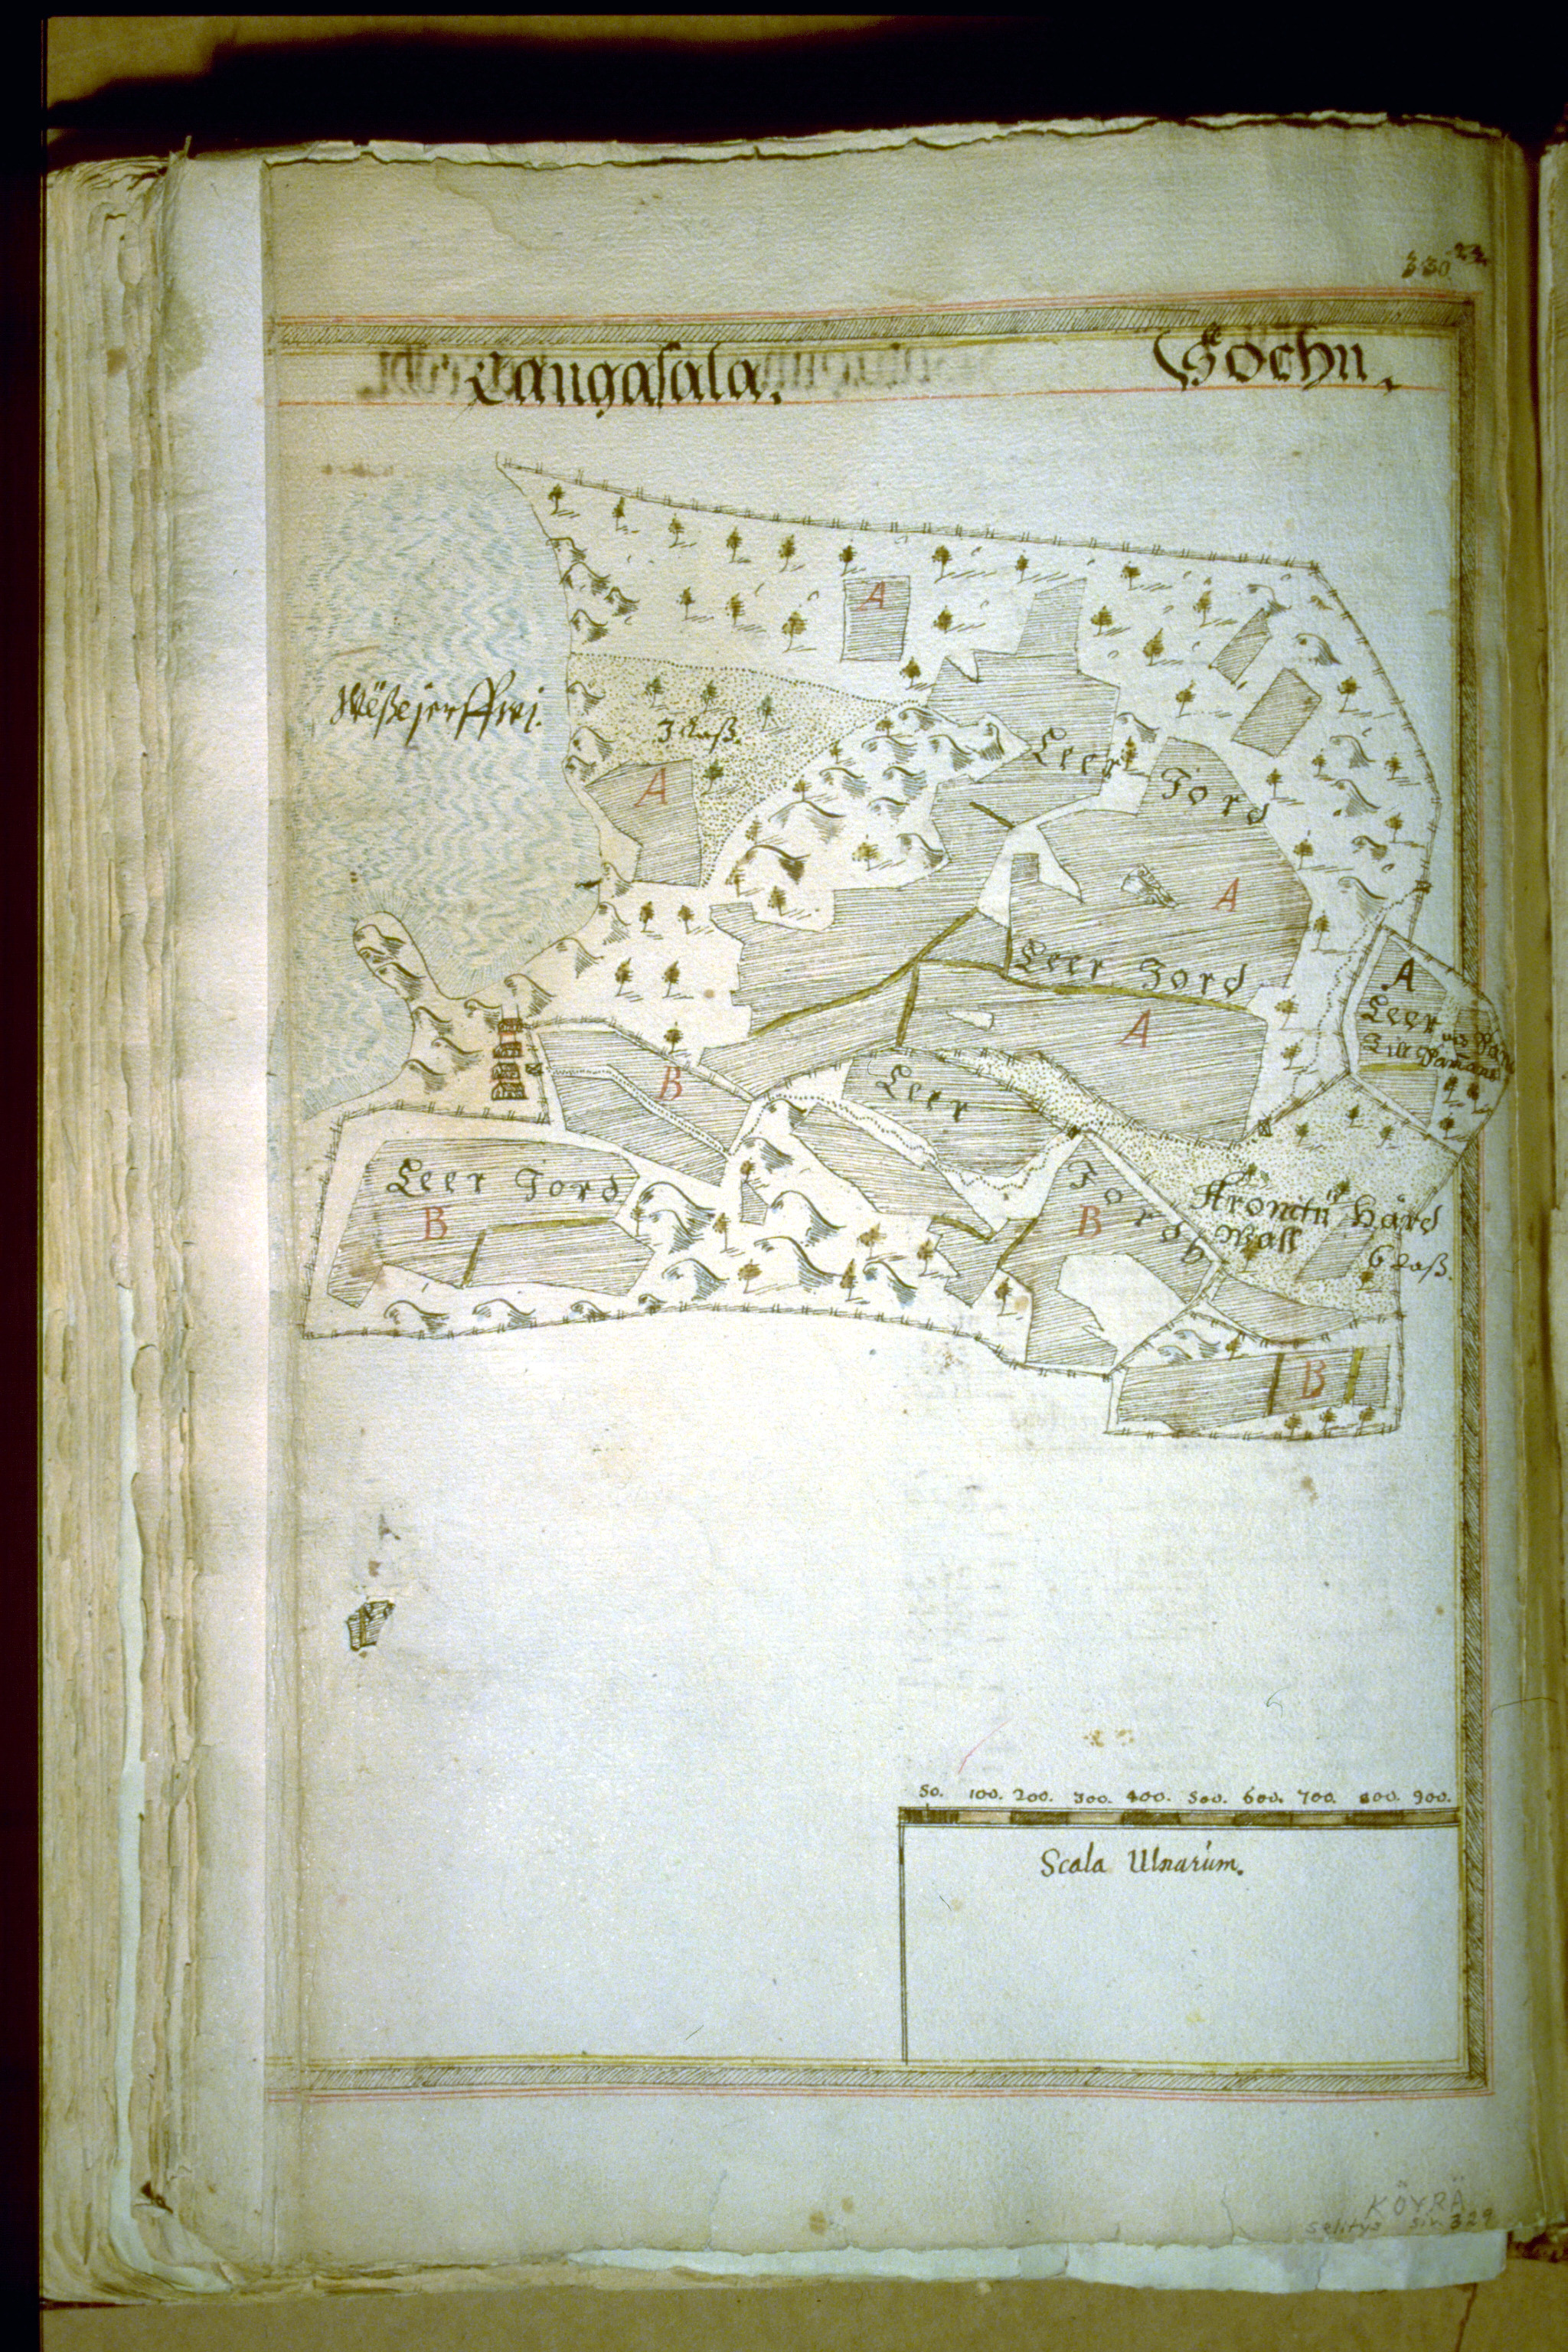 330
Cangasala. Sochn.
A
Weßejerffwi.
3 laß.
A
Leer Jord
A
Leer Jord
A
A
Leer
Till
B
Leer
Jordh
B
Leer Jord
B
Kromtu Hård
Wall
6 laß.
B
50. 100. 200. 300. 400. 500. 600. 700. 800. 900.
Scala Ulnarum.
KÖYRÄ
selitys siv 329